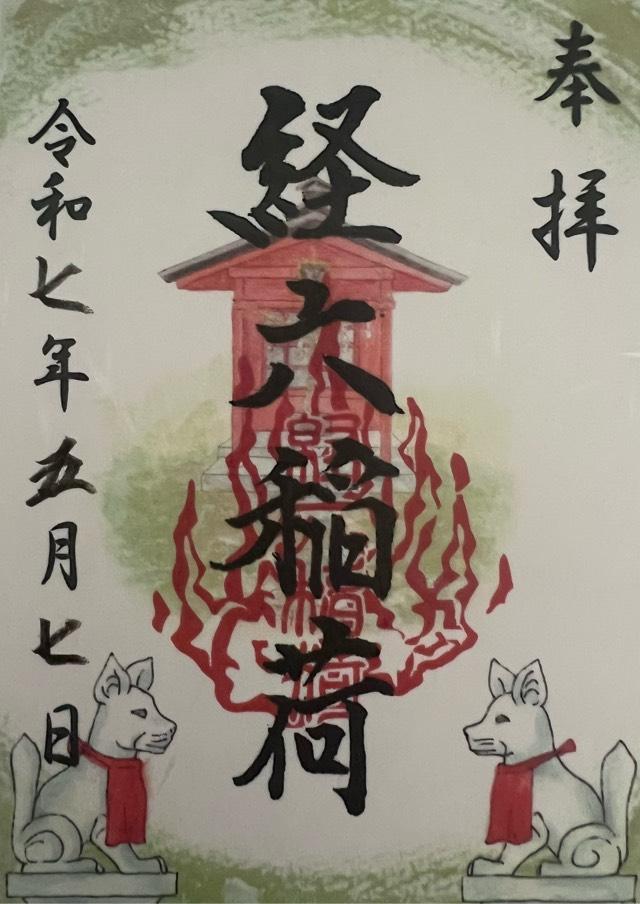 奉拝
経六稲荷
令和七年五月七日